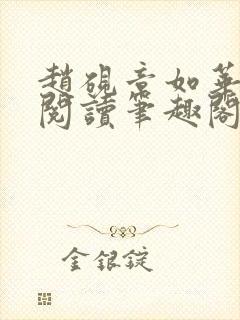 趙硯章如華
閱讀筆趣閣
金銀錠